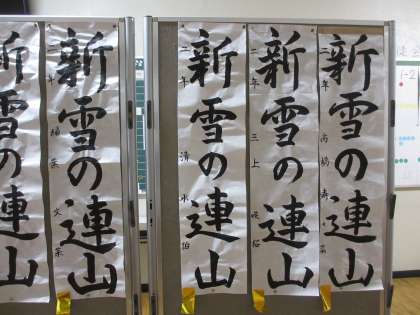 新雪の連山
二年 高橋
新雪の連山
二年 三上 咲桜
新雪の連山
二年 清水
新雪の連山
二年
新雪の連山